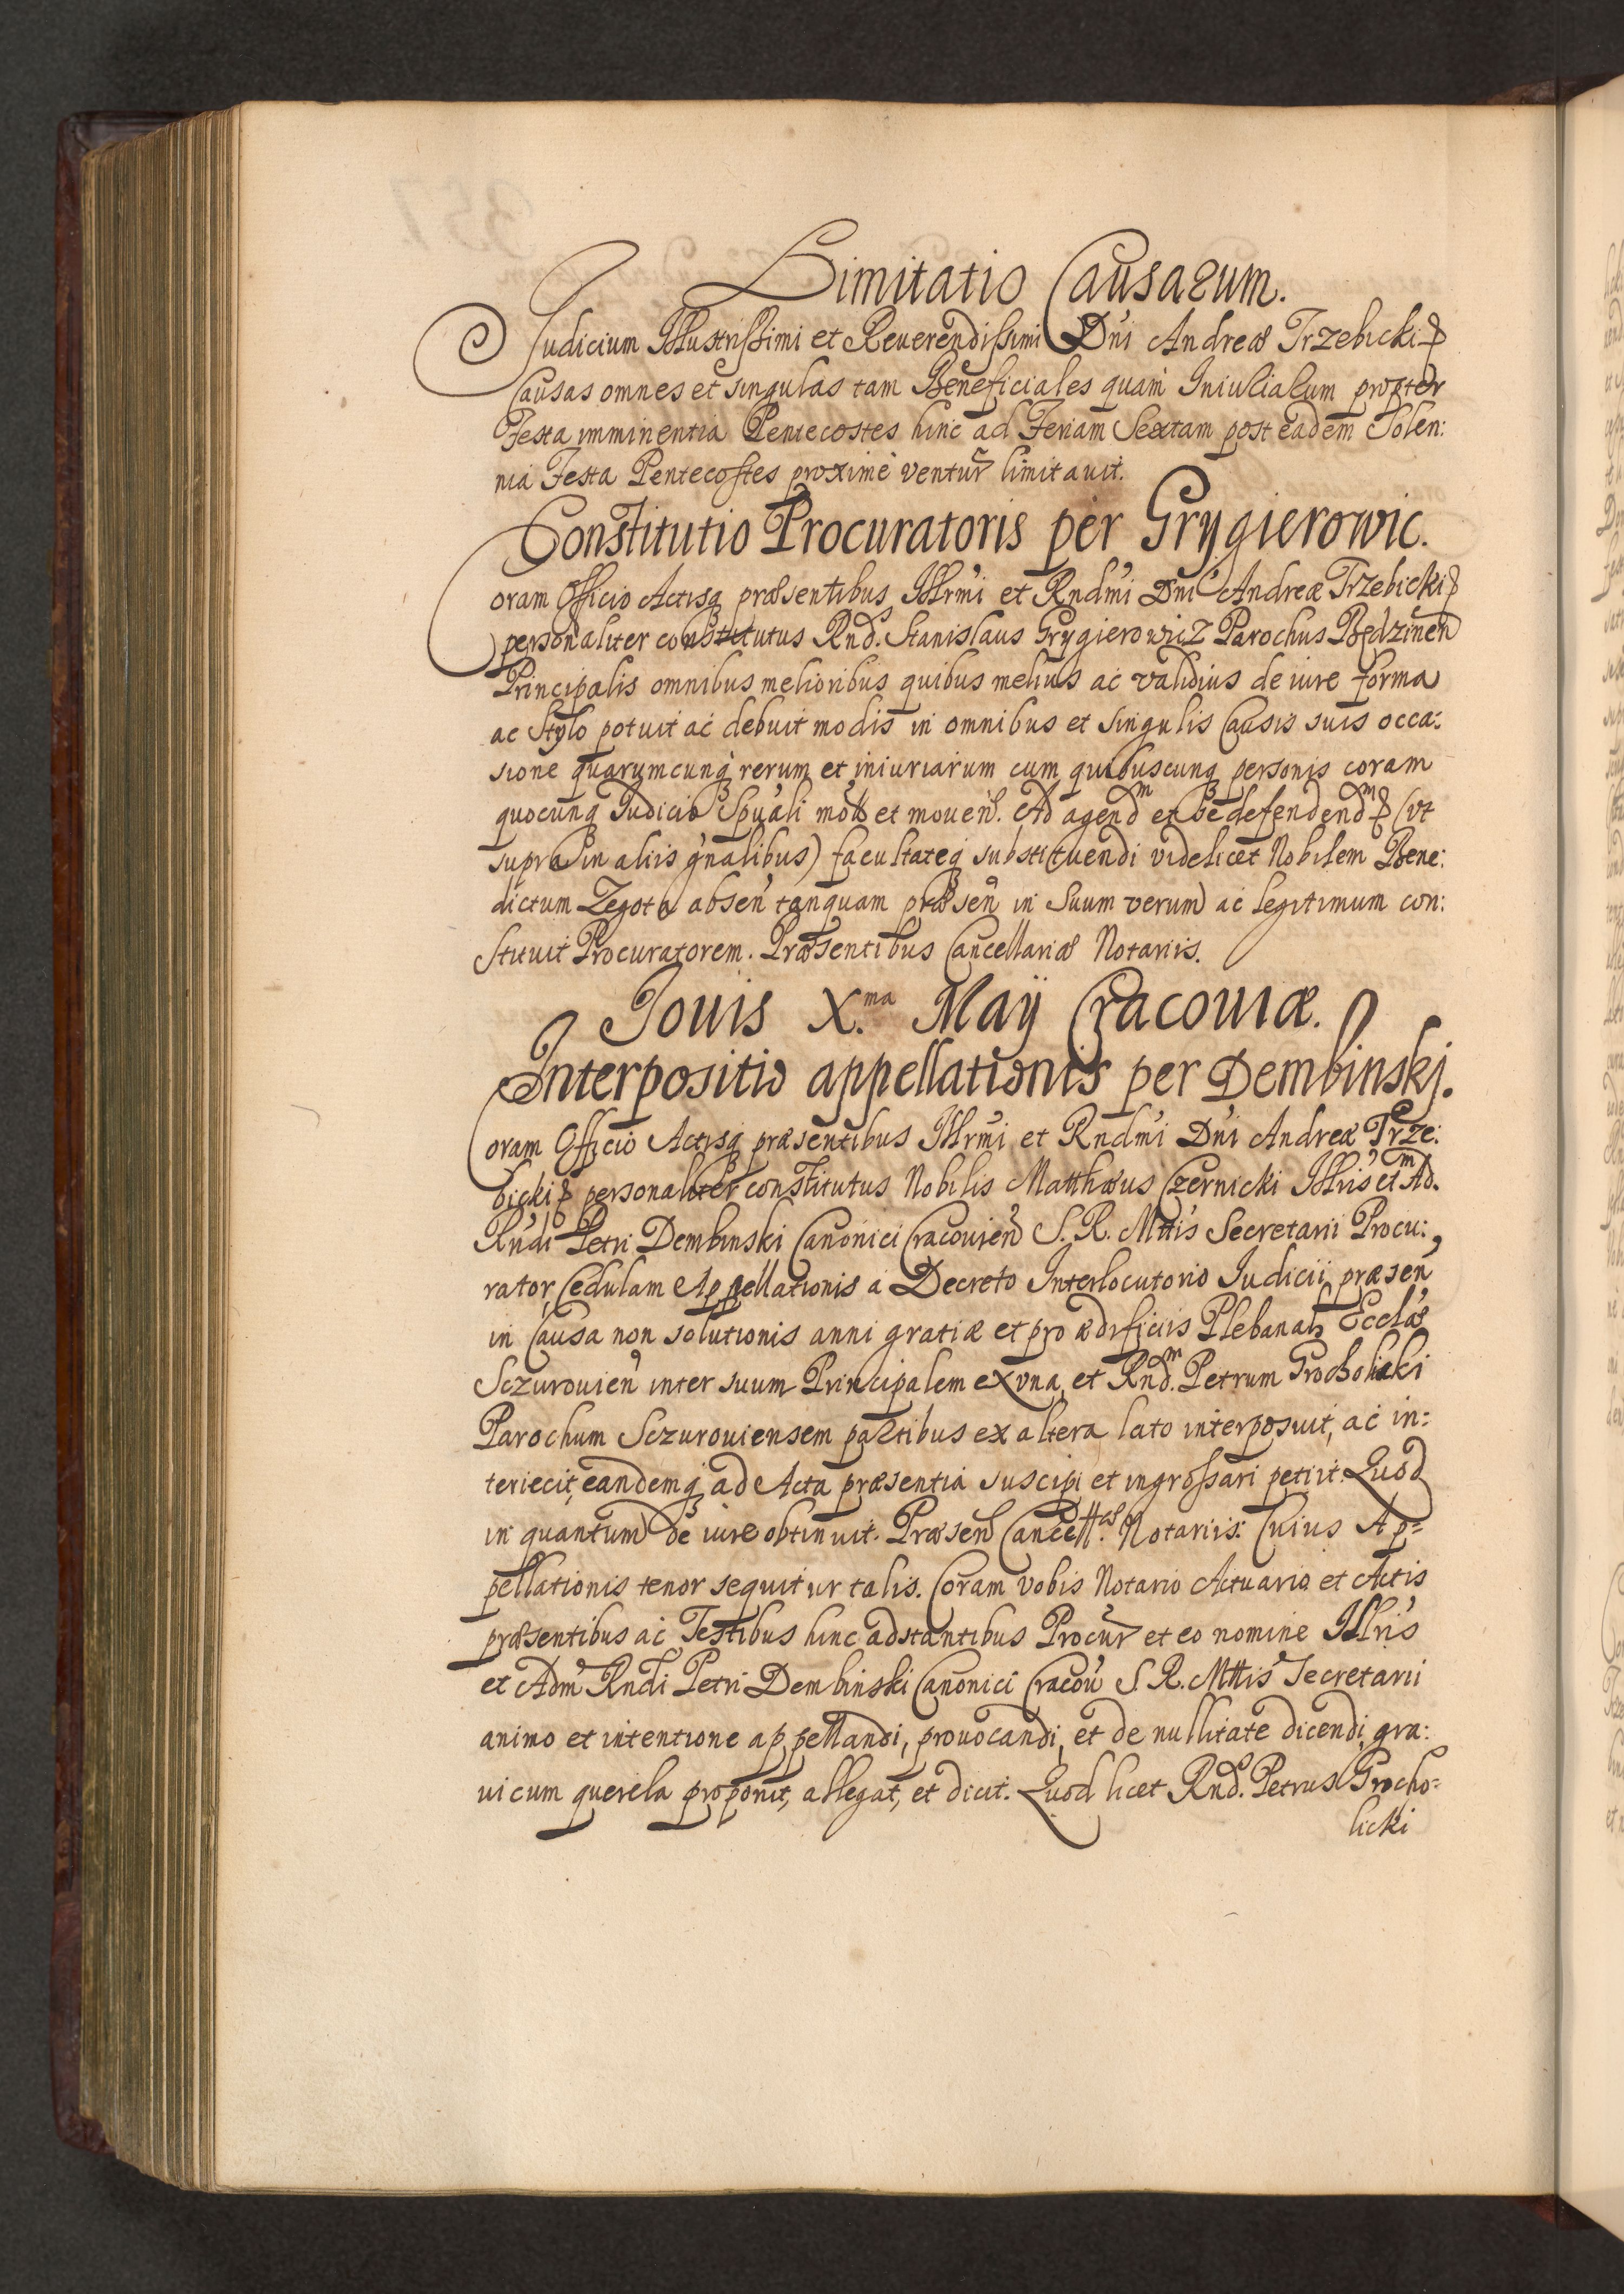 Limitatio Causarum.
Judicium Illustrissimi et Reuerendissimi Dni Andreæ Trzebicki &
Causas omnes et singulas tam Beneficiales quam Iniurialium propter
Festa imminentia Pentecostes hinc ad Feriam Sextam post eadem Solen:
nia Festa Pentecostes proxime ventur limitauit.
Constitutio Procuratoris per Grygierowic.
Coram Officio Actisq præsentibus Illrmi et Rndmi Dni Andreæ Trzebicki &
personaliter constitutus Rnd. Stanislaus Grygierowicz Parochus Będzinen
Principalis omnibus melioribus quibus melius ac validius de iure forma
ac Stylo potuit ac debuit modis in omnibus et singulis Causis suis occa:
sione quarumcunq rerum et iniuriarum cum quibuscunq personis coram
quocunq Judicio Spuali motis et mouen. Ad agend^m et se defendend^m & (vt
supra in aliis gnalibus) facultateq substituendi videlicet Nobilem Bene:
dictum Zegota absen tanquam præsen in Suum verum ac legitimum con:
stituit Procuratorem. Præsentibus Cancellariæ Notariis.
Jouis X.ma Maij Cracouiæ.
Interpositio appellationis per Dembinskj.
Coram Officio Actisq præsentibus Illrmi et Rndmi Dni Andreæ Trze:
bicki & personaliter constitutus Nobilis Matthæus Czernicki Illris et Ad.m
Rndi Petri Dembinski Canonici Cracouien S. R. Mttis Secretarii Procu:
rator Cedulam Appellationis a Decreto Interlocutorio Iudicii præsen
in Causa non solutionis anni gratiæ et pro ædificiis Plebanal Ecclæ
Sczurouien inter suum Principalem ex vna, et Rnd.m Petrum Grocholicki
Parochum Sczurouiensem partibus ex altera lato interposuit, ac in:
teriecit, eandemq ad Acta præsentia suscipi et ingrossari petiit. Quod
in quantum de iure obtinuit. Præsen Cancell.æ Notariis. Cuius Ap=
pellationis tenor sequitur talis. Coram vobis Notario Actuario et Actis
præsentibus ac Testibus hinc adstantibus Procur et eo nomine Illris
et Adm Rndi Petri Dembinski Canonici Cracou S. R. Mttis Secretarii
animo et intentione appellandi, prouocandi, et de nullitate dicendi, gra:
ui cum querela proponit, allegat, et dicit. Quod licet Rnd. Petrus Grocho=
licki